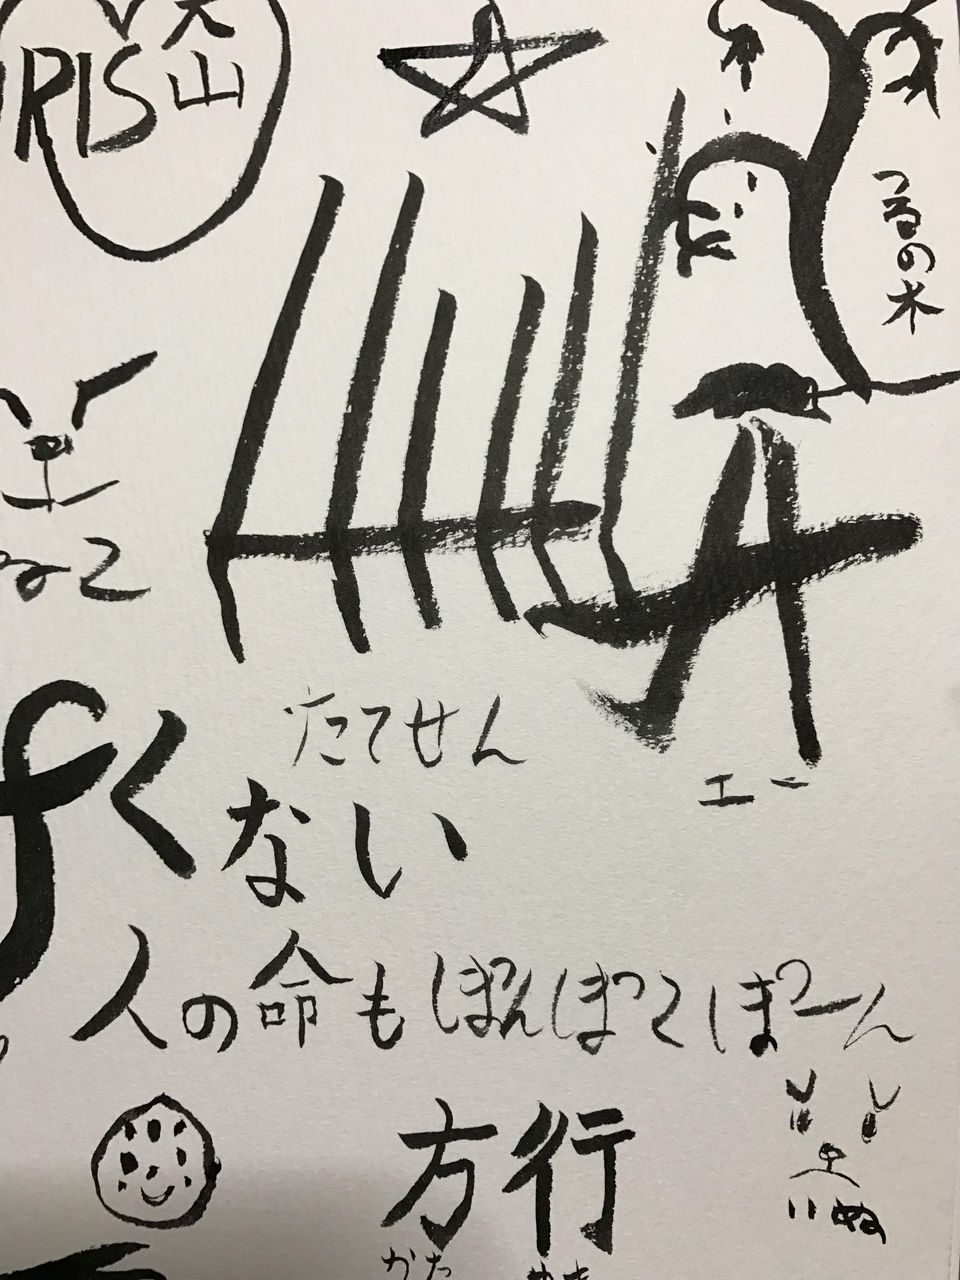 RIS
山
の木
ねこ
たてせん
エー
くない
人の命もぽんぽこぽーん
方行
かた
いぬ